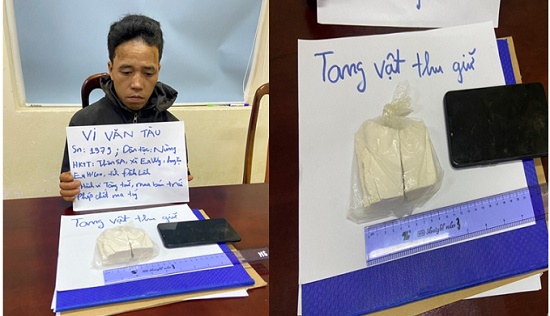 VI VĂN TÀU
Sn: 1979; Dân tộc: Nùng
HKTT: Thôn 5A, xã EaWy, huyện
EaH'leo, tỉnh Đắk Lắk
Hành vi: Tàng trữ, mua bán trái
Phép chất ma túy
Tang vật thu giữ
Tang vật thu giữ